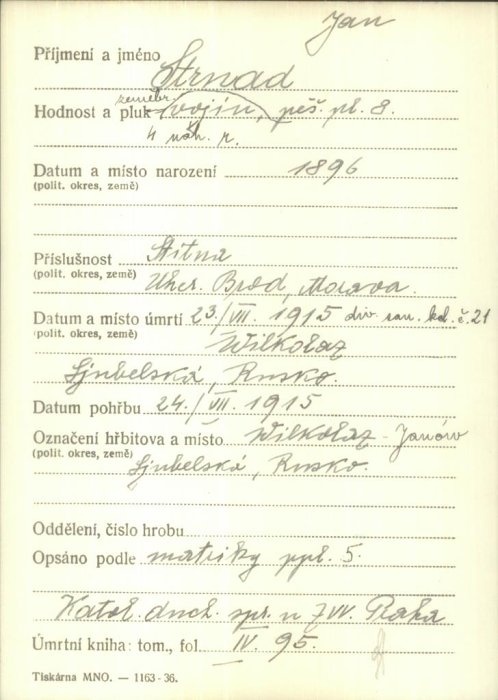 Jan
Příjmení a jméno Strnad
zeměbr.
Hodnost a pluk vojín, pěš. pl. 8.
4 náh. r.
Datum a místo narození 1896
(polit. okres, země)
Příslušnost Štitna
(polit. okres, země) Uher. Brod, Morava.
Datum a místo úmrtí 23./VII. 1915 div. san. kol. č. 21
(polit. okres, země) Wilkolaz
Ljubelská, Rusko.
Datum pohřbu 24./VII. 1915
Označení hřbitova a místo Wilkolaz - Janów
(polit. okres, země) Ljubelská, Rusko.
Oddělení, číslo hrobu
Opsáno podle matriky ppl. 5.
Katol. duch. spr. u ZVV. Praha
Úmrtní kniha: tom., fol. IV. 95.
Tiskárna MNO. — 1163-36.